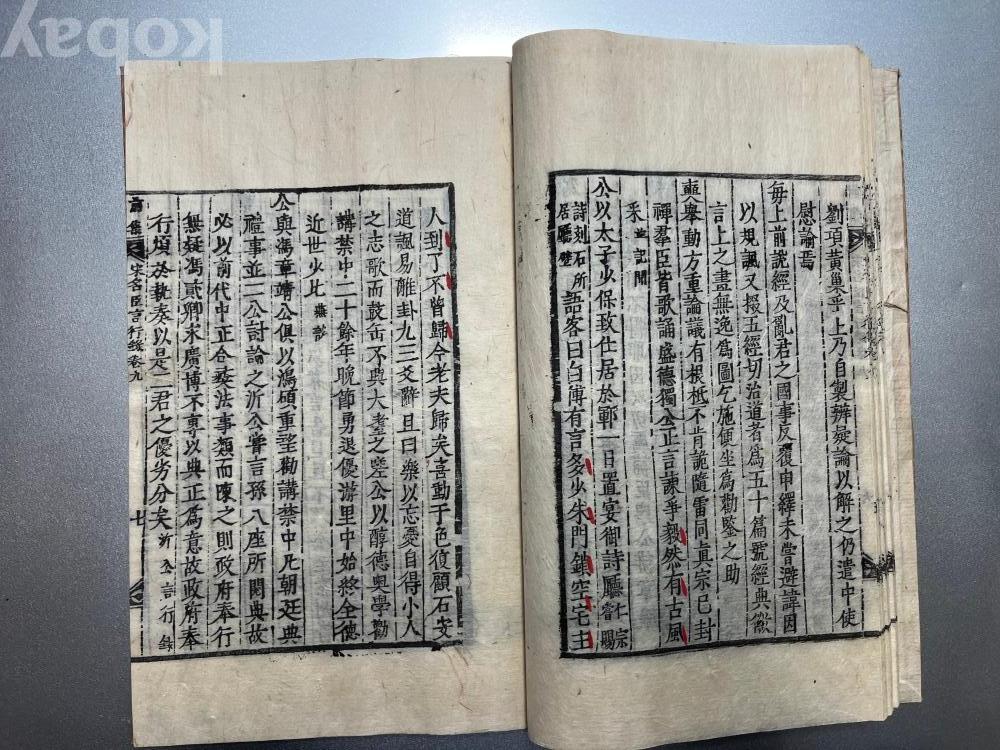 劉項黃巢乎上乃自製辨疑論以解之仍遣中使
慰諭焉
每上前說經及亂君亡國事反覆申繹未嘗避諱因
以規諷又掇五經切治道者爲五十篇號經典徽
言上之畫無逸爲圖乞施便坐爲勸鑒之助
奭舉動方重論議有根柢不肯詭隨雷同眞宗已封
禪羣臣皆歌誦盛德獨公正言諫爭毅然有古風
采並記聞
公以太子少保致仕居於鄆一日置宴御詩廳仁宗
詩刻石所
居廳壁
語客曰白傅有言多少朱門鎖空宅主
人到了不曾歸今老夫歸矣喜動于色復顧石安
道諷易離卦九三爻辭且曰樂以忘憂自得小人
之志歌而鼓缶不興大耋之嗟公以醇德奧學勸
講禁中二十餘年晚節勇退優游里中始終全德
近世少比燕談
公與馮章靖公俱以鴻碩重望勸講禁中凡朝廷典
禮事並二公討論之沂公嘗言孫八座所閱典故
必以前代中正合彝法事類而陳之則政府奉行
無疑馮貳卿求廣博不專以典正爲意故政府奉
行煩於執奏以是二君之優劣分矣沂公言行錄
前集
宋名臣言行錄卷九
七
kobay